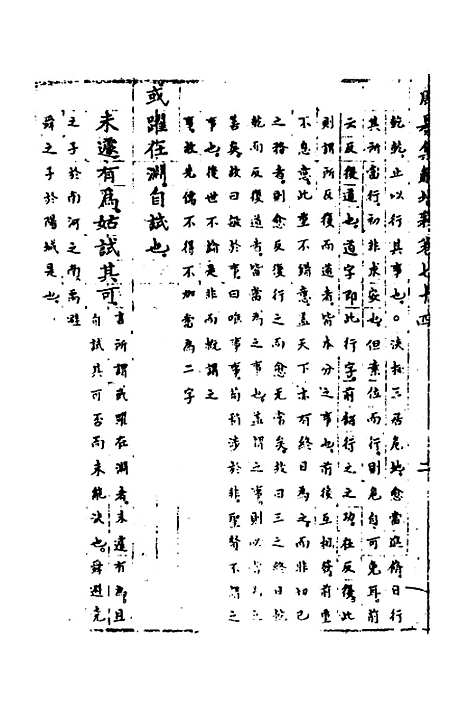 乾乾止以行其事也○決於三居危地愈當進脩日行
其所當行初非求安也但素位而行則危自可免耳前
云反復道也道字即此行字前錯行之之功在反復此
則謂所反復而道者皆本分之事也前後互相發前重
不息意此重不錯意蓋天下未有終日為之而非切己
之務者則愈反復行之而愈无常矣故曰三之終日乾
乾而反復道者皆當為之事也若謂之事則以
善矣故曰敏於事曰唯事事苟稍涉於非聖賢不謂之
事也後世不論是非而概謂之
事故先儒不得不加當為二字
或躍在淵自試也
未遽有為姑試其可
言所謂或躍在淵者未遽有為且
自試其可否而未能決也舜避堯
之子於南河之南禹避
舜之子於陽城是也